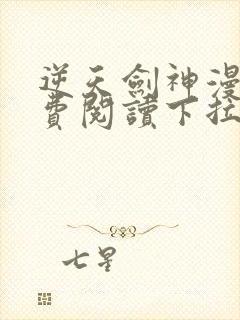 逆天劍神漫
費閱讀下拉
七星